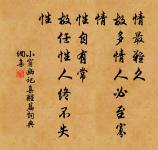 情最難久
故多情人必至寡
情
性自有常
故任性人終不失
性
小窗幽記集醒篇詞典
網集